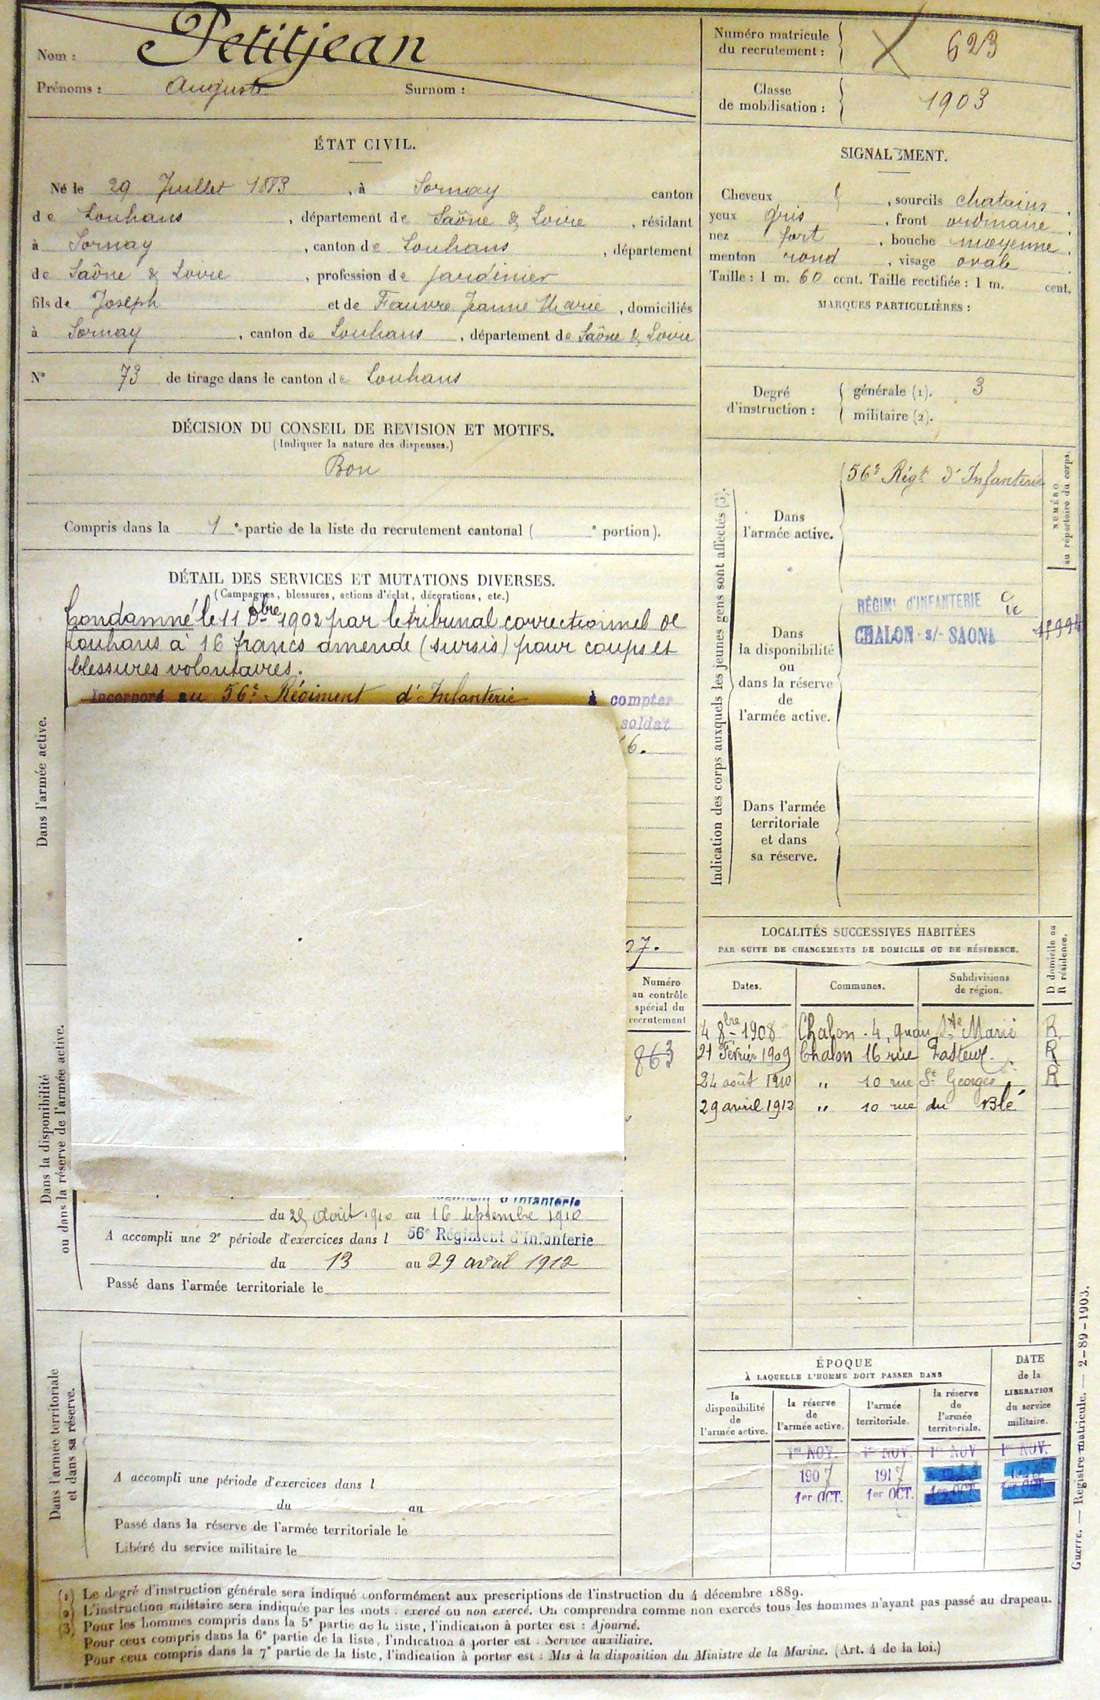 Nom : Petitjean
Prénoms : Auguste Surnom :
Numéro matricule
du recrutement : 623
Classe
de mobilisation : 1903
ÉTAT CIVIL.
Né le 29 Juillet 1883, à Sornay canton
de Louhans, département de Saône & Loire, résidant
à Sornay, canton de Louhans, département
de Saône & Loire, profession de jardinier
fils de Joseph et de Fauvre Jeanne Marie, domiciliés
à Sornay, canton de Louhans, département de Saône & Loire
N° 73 de tirage dans le canton de Louhans
SIGNALEMENT.
Cheveux, sourcils chatains,
yeux gris, front ordinaire,
nez fort, bouche moyenne,
menton rond, visage ovale
Taille : 1 m. 60 cent. Taille rectifiée : 1 m. cent.
MARQUES PARTICULIÈRES :
Degré
d'instruction :
générale (1). 3
militaire (2).
DÉCISION DU CONSEIL DE REVISION ET MOTIFS.
(Indiquer la nature des dispenses.)
Bon
Compris dans la 1e partie de la liste du recrutement cantonal ( e portion).
DÉTAIL DES SERVICES ET MUTATIONS DIVERSES.
(Campagnes, blessures, actions d'éclat, décorations, etc.)
Condamné le 11 Xbre 1902 par le tribunal correctionnel de
Louhans à 16 francs amende (sursis) pour coups et
blessures volontaires.
Incorporé au 56e Régiment d'Infanterie à compter
soldat
6.
27.
Dans l'armée active.
Numéro
au contrôle
spécial du
recrutement
863
Dans la disponibilité
ou dans la réserve de l'armée active.
d'Infanterie
du 25 Août 1910 au 16 septembre 1910
A accompli une 2e période d'exercices dans l 56e Régiment d'Infanterie
du 13 au 29 avril 1912
Passé dans l'armée territoriale le
Dans l'armée territoriale
et dans sa réserve.
A accompli une période d'exercices dans l
du au
Passé dans la réserve de l'armée territoriale le
Libéré du service militaire le
Indication des corps auxquels les jeunes gens sont affectés (3).
NUMÉRO
au répertoire du corps.
Dans
l'armée active.
56e Régt d'Infanterie
Dans
la disponibilité
ou
dans la réserve
de
l'armée active.
RÉGIMt d'INFANTERIE
CHALON s/ SAONE
Dans l'armée
territoriale
et dans
sa réserve.
LOCALITÉS SUCCESSIVES HABITÉES
PAR SUITE DE CHANGEMENTS DE DOMICILE OU DE RÉSIDENCE.
D domicile ou
R résidence.
Dates. Communes. Subdivisions
de région.
4 8bre 1908 Chalon 4, quai Ste Marie R
21 Février 1909 Chalon 16 rue Pasteur R
24 août 1910 " 10 rue St Georges R
29 avril 1912 " 10 rue du Blé
ÉPOQUE
À LAQUELLE L'HOMME DOIT PASSER DANS
DATE
de la
LIBÉRATION
du service
militaire.
la
disponibilité
de
l'armée active.
la réserve
de
l'armée active.
l'armée
territoriale.
la réserve
de
l'armée
territoriale.
1er NOV. 1er NOV. 1er NOV 1er NOV.
1907 1917
1er OCT. 1er OCT. 1er OCT.
Guerre. — Registre matricule. — 2-89-1903.
(1) Le degré d'instruction générale sera indiqué conformément aux prescriptions de l'instruction du 4 décembre 1889.
(2) L'instruction militaire sera indiquée par les mots : exercé ou non exercé. On comprendra comme non exercés tous les hommes n'ayant pas passé au drapeau.
(3) Pour les hommes compris dans la 5e partie de la liste, l'indication à porter est : Ajourné.
Pour ceux compris dans la 6e partie de la liste, l'indication à porter est : Service auxiliaire.
Pour ceux compris dans la 7e partie de la liste, l'indication à porter est : Mis à la disposition du Ministre de la Marine. (Art. 4 de la loi.)